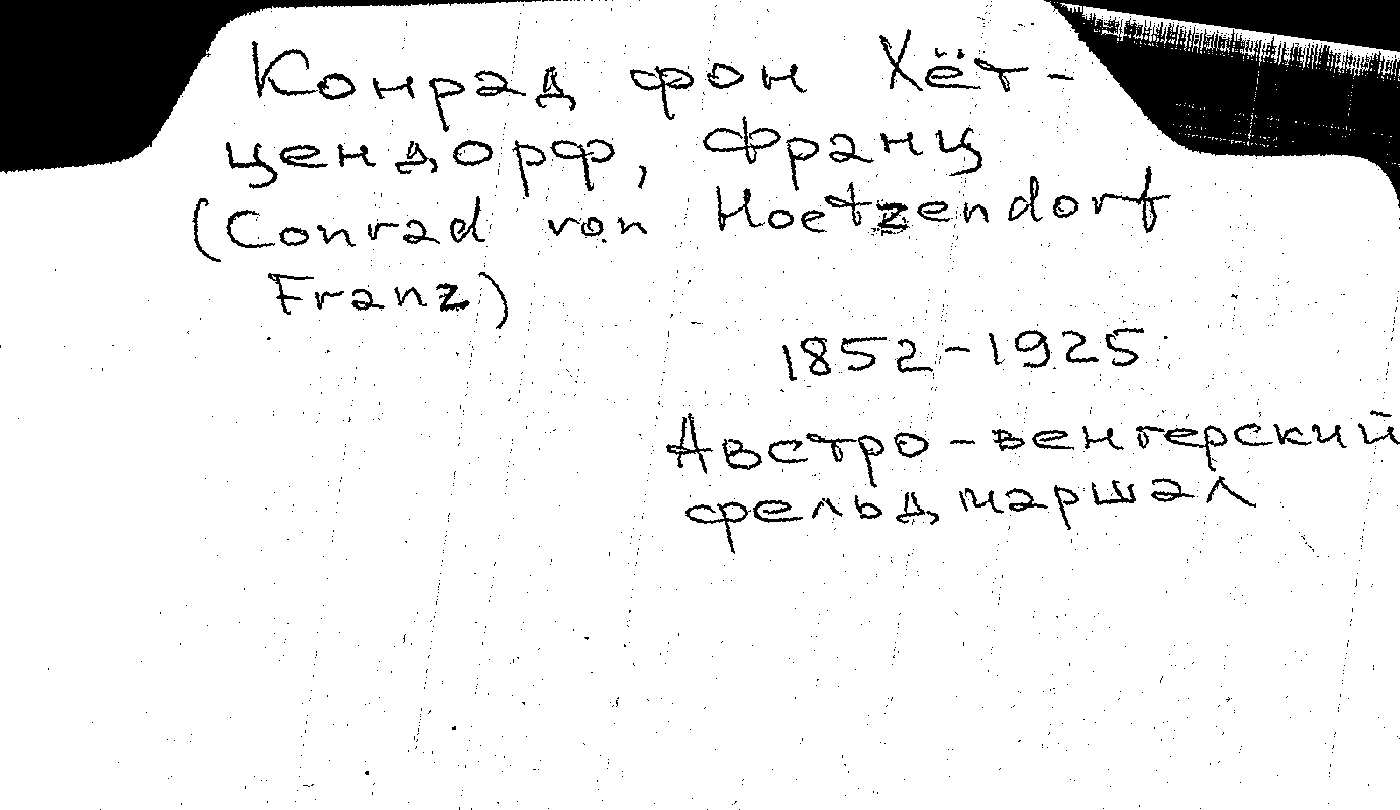 Конрад фон Хёт-
цендорф, Франц
(Conrad von Hoetzendorf
Franz)
1852-1925
Австро-венгерский
фельдмаршал